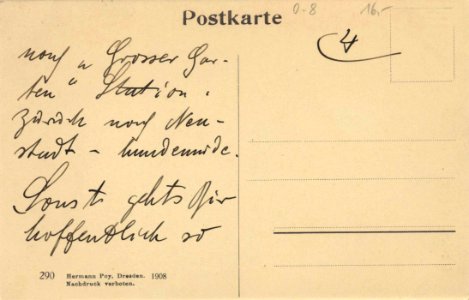 Postkarte
0-8 16,-
4
noch „Grosser Gar-
ten" Station.
Zurück nach Neu-
stadt - hundemüde.
Sonst gehts Dir
hoffentlich so
290 Hermann Poy, Dresden. 1908
Nachdruck verboten.